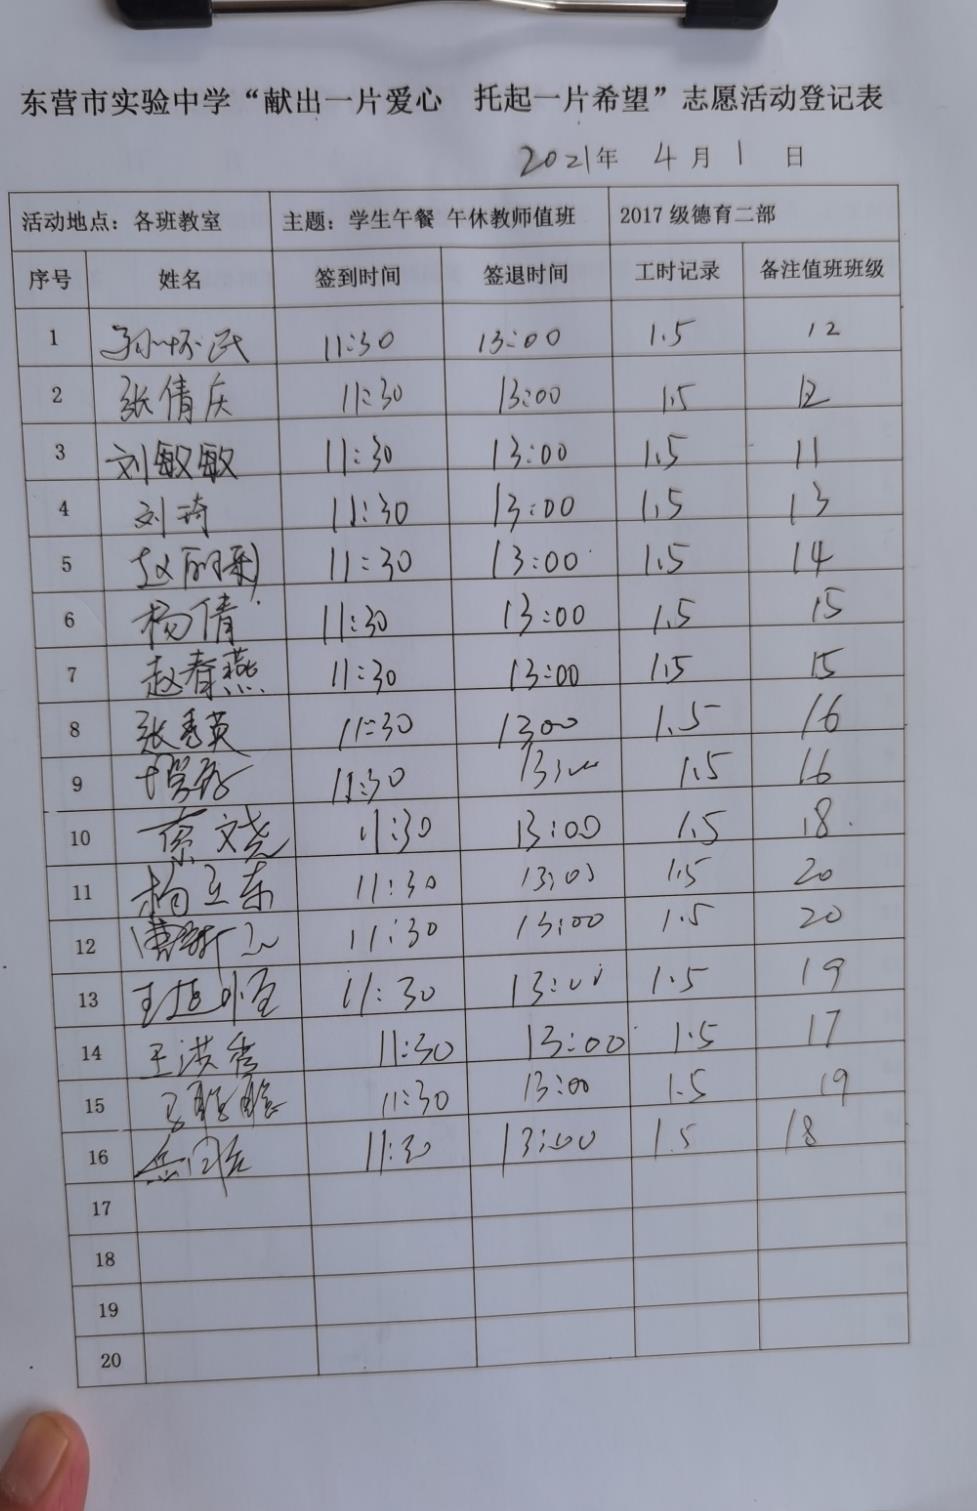 东营市实验中学“献出一片爱心 托起一片希望”志愿活动登记表
2021年 4月1日
活动地点：各班教室 主题：学生午餐 午休教师值班 2017级德育二部
序号 姓名 签到时间 签退时间 工时记录 备注值班班级
1 孙怀民 11:30 13:00 1.5 12
2 张倩庆 11:30 13:00 1.5 12
3 刘敏敏 11:30 13:00 1.5 11
4 刘琦 11:30 13:00 1.5 13
5 赵丽 11:30 13:00 1.5 14
6 杨倩 11:30 13:00 1.5 15
7 赵春燕 11:30 13:00 1.5 15
8 张秀英 11:30 1300 1.5 16
9 11:30 13:00 1.5 16
10 文尧 11:30 13:00 1.5 18.
11 杨立东 11:30 13:00 1.5 20
12 曹 11:30 13:00 1.5 20
13 王 11:30 13:00 1.5 19
14 王洪秀 11:30 13:00 1.5 17
15 11:30 13:00 1.5 19
16 岳 11:30 13:00 1.5 18
17
18
19
20